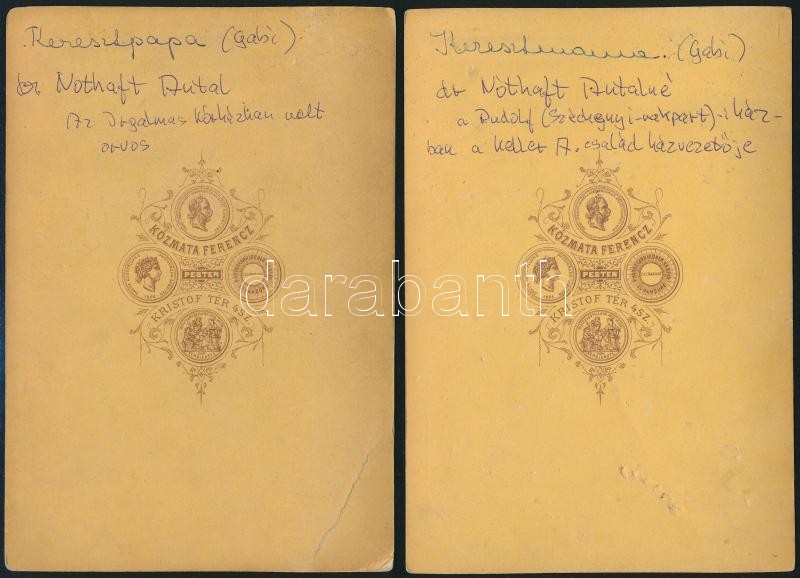 Keresztpapa (Gabi)
dr Nóthaft Antal
Az Irgalmas kórházban volt
orvos
KOZMATA FERENCZ
PESTEN
KRISTOF TÉR 4SZ.
Keresztmama. (Gabi)
dr Nóthaft Antalné
a Rudolf (Széchenyi-rakpart)-i ház-
ban a Keller A. család házvezetője
KOZMATA FERENCZ
PESTEN
KRISTOF TÉR 4SZ.
darabanth